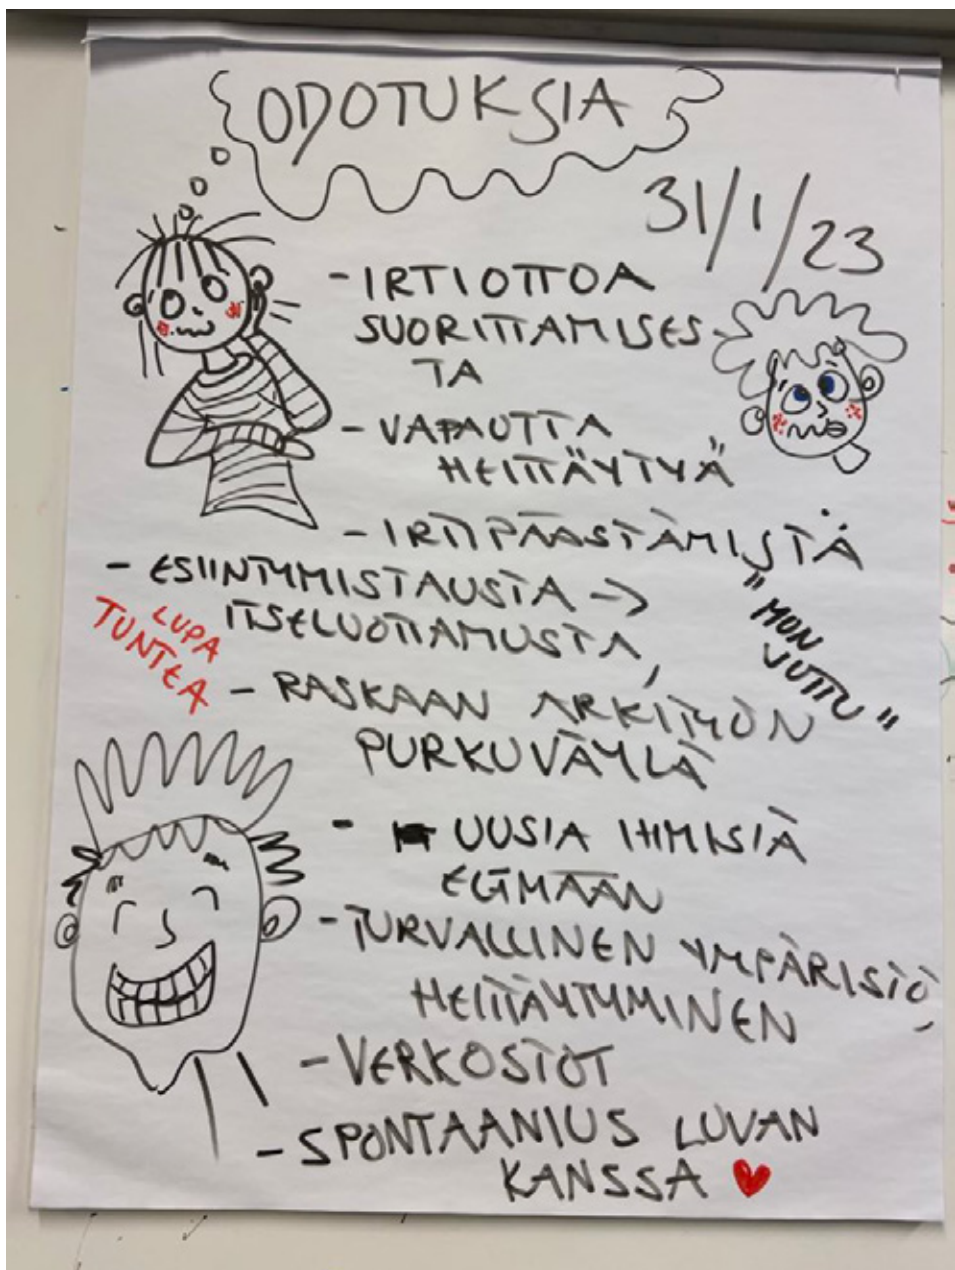 ODOTUKSIA
31/1/23
- IRTIOTTOA
SUORITTAMISES-
TA
- VAPAUTTA
HEITTÄYTYÄ
- IRTIPÄÄSTÄMISTÄ
- ESIINTYMISTAUSTA ->
ITSELUOTTAMUSTA,
"MUN
JUTTU"
LUPA
TUNTEA
- RASKAAN ARKITYÖN
PURKUVÄYLÄ
- UUSIA IHMISIÄ
ELÄMÄÄN
- TURVALLINEN YMPÄRISTÖ,
HEITTÄYTYMINEN
- VERKOSTOT
- SPONTAANIUS LUVAN
KANSSA ♥